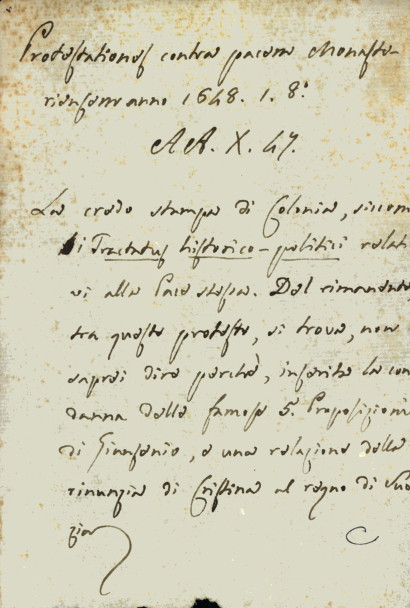 Protestationes contra pacem Monaste-
riensem anno 1648. 1. 8.°
AA. X. 47.
La credo stampa di Colonia, siccom
i Tractatus historico-politici relati
vi alla Pace stessa. Del rimanente
tra queste proteste, si trova, non
saprei dire perchè, inserita la con
danna delle famose 5. Proposizioni
di Giansenio, e una relazione della
rinunzia di Cristina al regno di Sve
zia